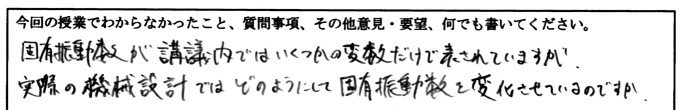 今回の授業でわからなかったこと、質問事項、その他意見・要望、何でも書いてください。
固有振動数が講議内ではいくつかの変数だけで表されていますが、
実際の機械設計ではどのようにして固有振動数を変化させているのですか.